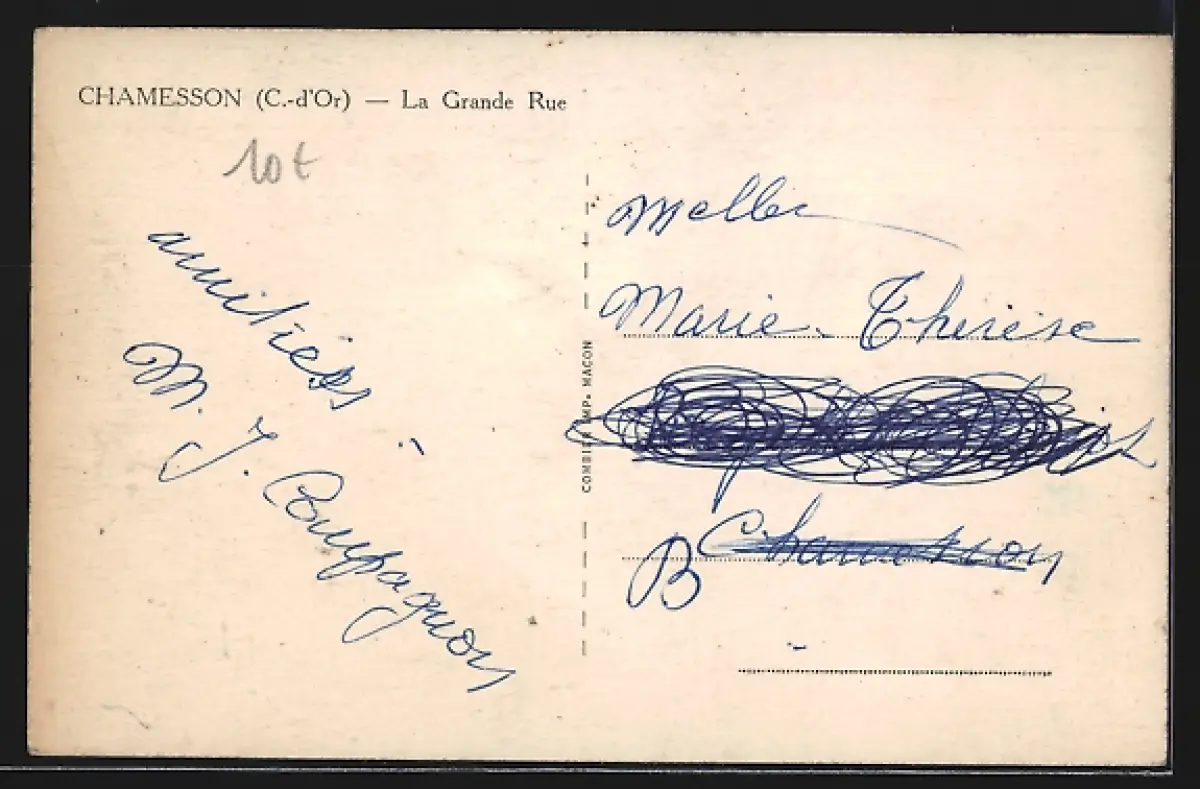 CHAMESSON (C.-d'Or) — La Grande Rue
10t
amitiés
M. J. Compagnon
COMBIER IMP. MACON
Melle
Marie-Thérèse
Chamesson
B